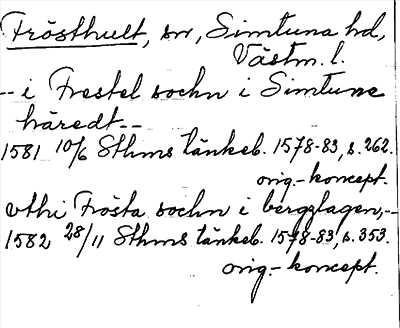 Frösthult, sn, Simtuna hd,
Västm. l.
-- i Frestel sochn i Simtune
häredt --
1581 10/6 Sthms tänkeb. 1578-83, s. 262.
orig.- koncept.
vthi Frösta sochn i bergzlagen, --
1582 28/11 Sthms tänkeb. 1578-83, s. 353.
orig.- koncept.